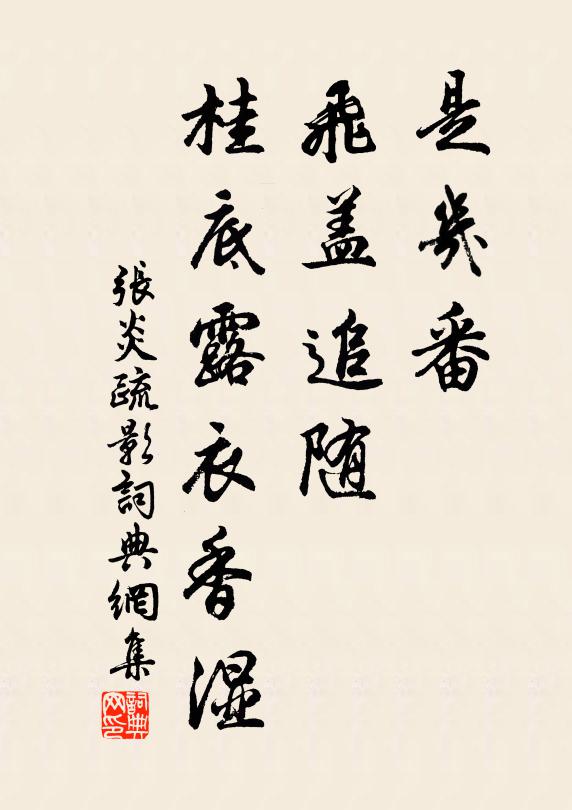 是幾番
飛盖追随
桂底露衣香濕
張炎疏影詞典網集
詞典网印